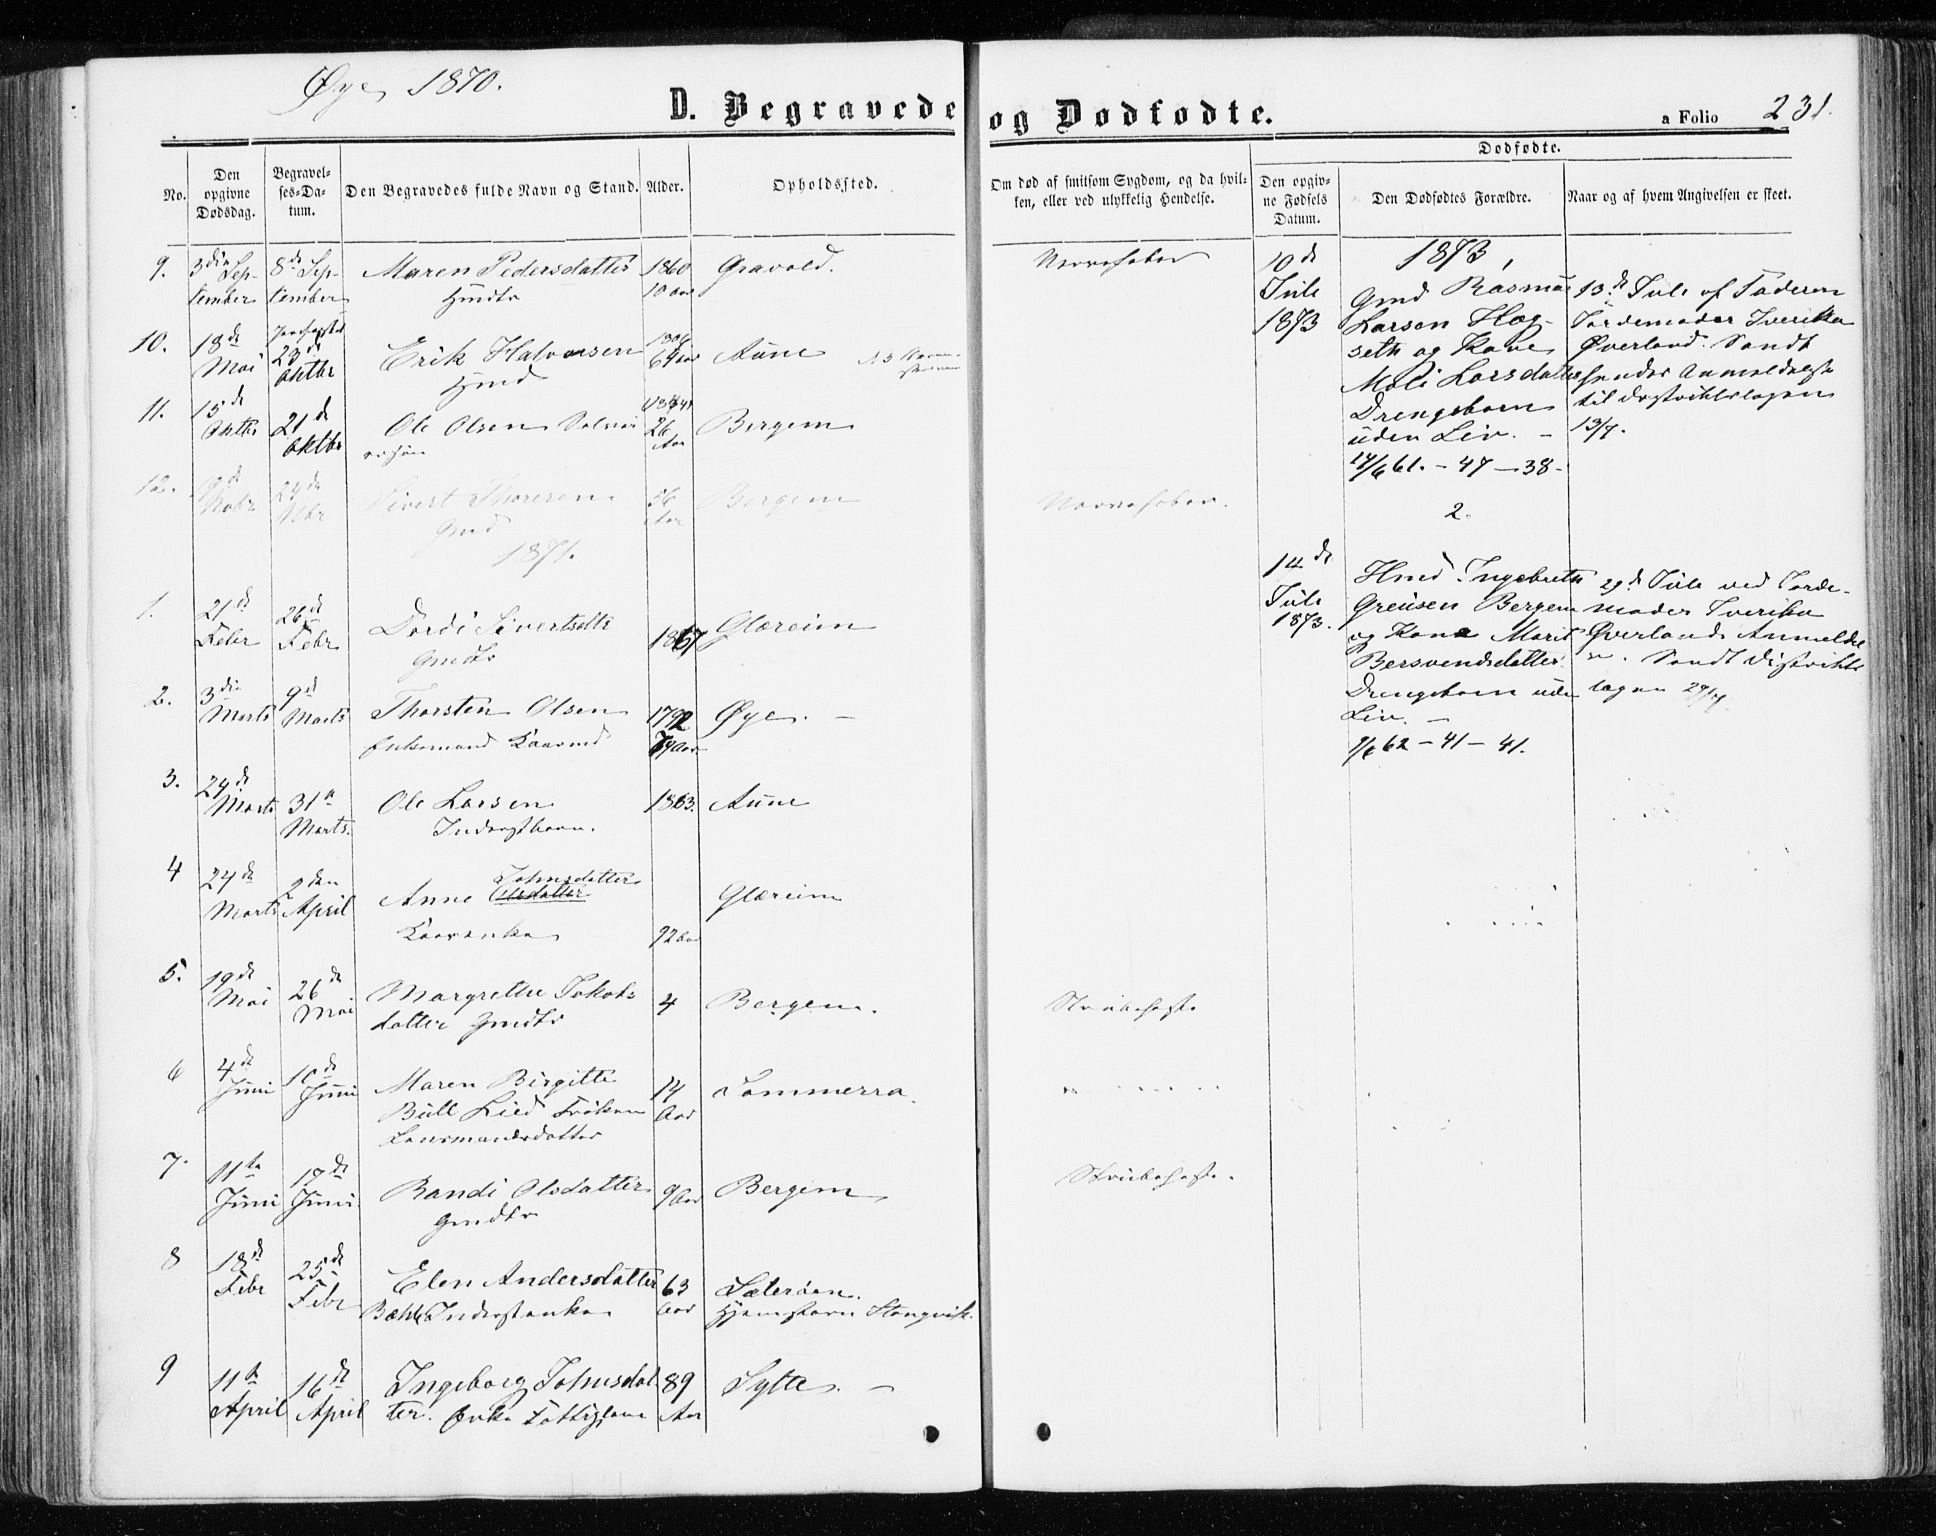 Øye 1870.
D. Begravede og Dødfødte.
a Folio 231.
No.
Den opgivne Dødsdag.
Begravelses-Datum.
Den Begravedes fulde Navn og Stand.
Alder.
Opholdssted.
Om død af smitsom Sygdom, og da hvilken, eller ved ulykkelig Hendelse.
Dødfødte.
Den opgivne Fødsels Datum.
Den Dødfødtes Forældre.
Naar og af hvem Angivelsen er skeet.
9. 3die Sep- 8de Sep- Maren Pedersdatter 1860 Gravold. Nervefeber
tember tember Gmdtr 10 Aar
10. 18de 23de Erik Halvorsen Aune
Mai Oktbr
11. 15de 21de Ole Olsen 26 Bergem
Oktbr Oktbr Aar
12. 19de 24de Sivert Thoresen 56 Bergem Nervefeber.
Nobr Nbr Gmd Aar
1871.
1. 21de 26de Dordi Sivertsdtr 1867 Glæreim
Feber Febr Gmdtr
2. 3die 9de Thorsten Olsen 1792 Øye. –
Marts Marts Enkemand Kaarmd
3. 24de 31te Ole Larsen 1863. Aune
Marts Marts. Inderstbarn.
4 24de 2den Anne Johnsdatter Olsdatter Glæreim
Marts April Kaarenke 92 Aar
5. 19de 26de Margrethe Jakobs 4 Bergem. Strubehoste
Mai Mai datter Gmdtr
6 4de 10de Maren Birgitte 14 Sommerra.
Juni Juni Bull Lied Frøken Aar
Lensmandsdatter
7. 11te 17de Randi Olsdatter 9 Aar Bergem Strubehoste.
Juni Juni Gmdtr
8 18de 25de Elen Andersdatter 63 Sæterøen.
Febr Febr Bæhl Inderstenke Aar Hjemstavn Stangvik.
9 11te 16de Ingeborg Johnsdat 89 Sylte. –
April April ter. Enke Fattiglem Aar
1873,
10de
Juli
1873
Gmd Rasmus
Larsen Hæg-
seth og Kone
Mali Larsdatter
Drengebarn
uden Liv. –
14/6 61. – 47 – 38 –
13de Juli af Faderen
Jordemoder Sverika
Øverland. Sendt
Anmeldelse
til Distriktslægen
13/7.
2.
14de
Juli
1873.
Hmd Ingebrigt
Greusen Bergem
og Kone Marit
Bersvendsdatter
Drengebarn uden
Liv. –
9/6 62 – 41 – 41.
29de Juli ved Jorde-
moder Sverika
Øverland. Anmeldel
Sendt Distrikts
lægen 29/7.